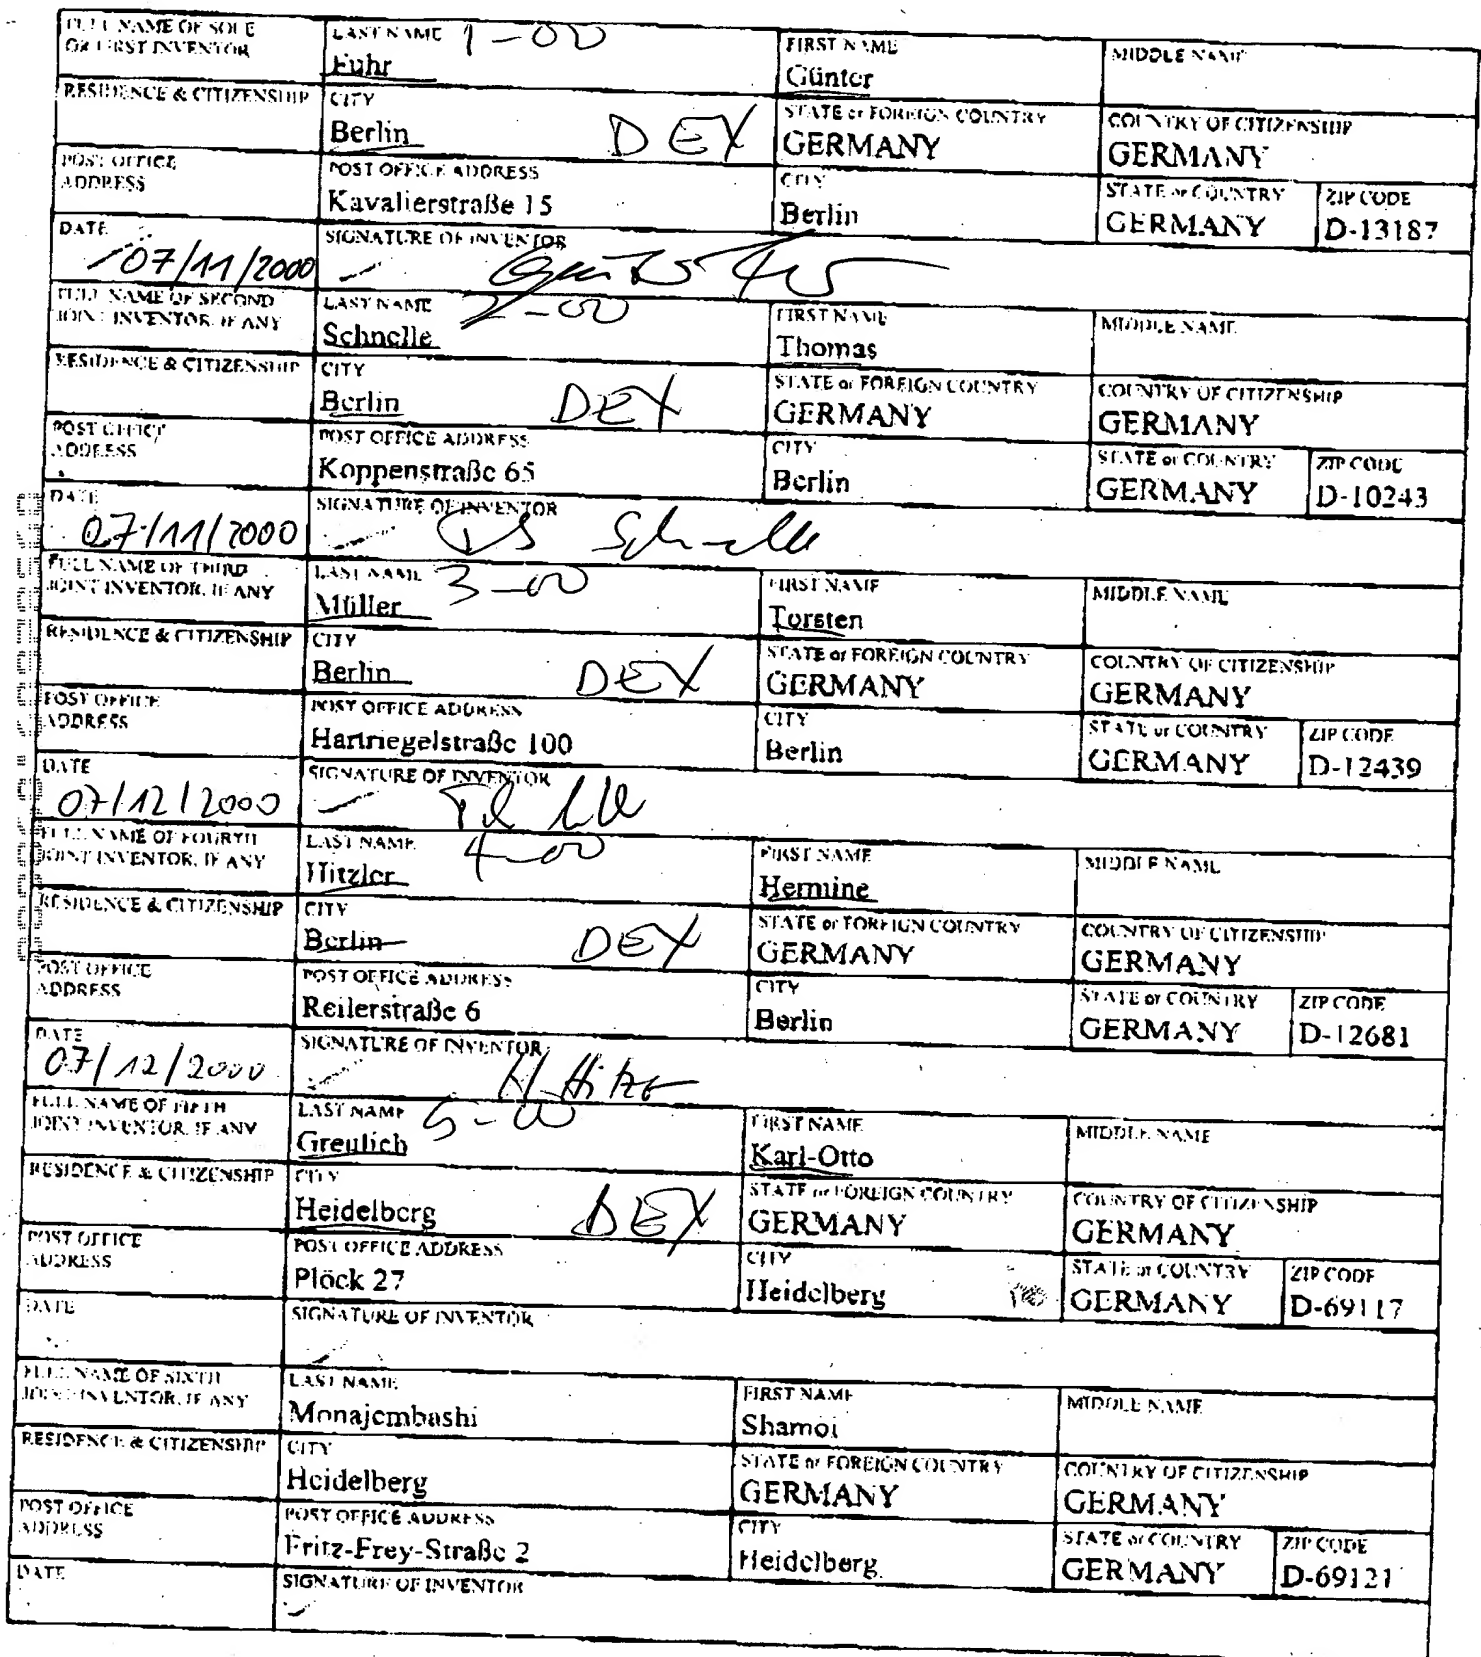 FULL NAME OF SOLE OR FIRST INVENTOR
LAST NAME 1-00
Fuhr
FIRST NAME
Günter
MIDDLE NAME
RESIDENCE & CITIZENSHIP
CITY
Berlin DEX
STATE or FOREIGN COUNTRY
GERMANY
COUNTRY OF CITIZENSHIP
GERMANY
POST OFFICE ADDRESS
POST OFFICE ADDRESS
Kavalierstraße 15
CITY
Berlin
STATE or COUNTRY
GERMANY
ZIP CODE
D-13187
DATE
07/11/2000
SIGNATURE OF INVENTOR
FULL NAME OF SECOND JOINT INVENTOR, IF ANY
LAST NAME 2-00
Schnelle
FIRST NAME
Thomas
MIDDLE NAME
RESIDENCE & CITIZENSHIP
CITY
Berlin DEX
STATE or FOREIGN COUNTRY
GERMANY
COUNTRY OF CITIZENSHIP
GERMANY
POST OFFICE ADDRESS
POST OFFICE ADDRESS
Koppenstraße 65
CITY
Berlin
STATE or COUNTRY
GERMANY
ZIP CODE
D-10243
DATE
07/11/2000
SIGNATURE OF INVENTOR
Schnelle
FULL NAME OF THIRD JOINT INVENTOR, IF ANY
LAST NAME 3-00
Müller
FIRST NAME
Torsten
MIDDLE NAME
RESIDENCE & CITIZENSHIP
CITY
Berlin DEX
STATE or FOREIGN COUNTRY
GERMANY
COUNTRY OF CITIZENSHIP
GERMANY
POST OFFICE ADDRESS
POST OFFICE ADDRESS
Hartriegelstraße 100
CITY
Berlin
STATE or COUNTRY
GERMANY
ZIP CODE
D-12439
DATE
07/12/2000
SIGNATURE OF INVENTOR
FULL NAME OF FOURTH JOINT INVENTOR, IF ANY
LAST NAME 4-00
Hitzler
FIRST NAME
Hermine
MIDDLE NAME
RESIDENCE & CITIZENSHIP
CITY
Berlin DEX
STATE or FOREIGN COUNTRY
GERMANY
COUNTRY OF CITIZENSHIP
GERMANY
POST OFFICE ADDRESS
POST OFFICE ADDRESS
Reilerstraße 6
CITY
Berlin
STATE or COUNTRY
GERMANY
ZIP CODE
D-12681
DATE
07/12/2000
SIGNATURE OF INVENTOR
FULL NAME OF FIFTH JOINT INVENTOR, IF ANY
LAST NAME 5-00
Greulich
FIRST NAME
Karl-Otto
MIDDLE NAME
RESIDENCE & CITIZENSHIP
CITY
Heidelberg DEX
STATE or FOREIGN COUNTRY
GERMANY
COUNTRY OF CITIZENSHIP
GERMANY
POST OFFICE ADDRESS
POST OFFICE ADDRESS
Plöck 27
CITY
Heidelberg
STATE or COUNTRY
GERMANY
ZIP CODE
D-69117
DATE
SIGNATURE OF INVENTOR
FULL NAME OF SIXTH JOINT INVENTOR, IF ANY
LAST NAME
Monajembashi
FIRST NAME
Shamoi
MIDDLE NAME
RESIDENCE & CITIZENSHIP
CITY
Heidelberg
STATE or FOREIGN COUNTRY
GERMANY
COUNTRY OF CITIZENSHIP
GERMANY
POST OFFICE ADDRESS
POST OFFICE ADDRESS
Fritz-Frey-Straße 2
CITY
Heidelberg
STATE or COUNTRY
GERMANY
ZIP CODE
D-69121
DATE
SIGNATURE OF INVENTOR